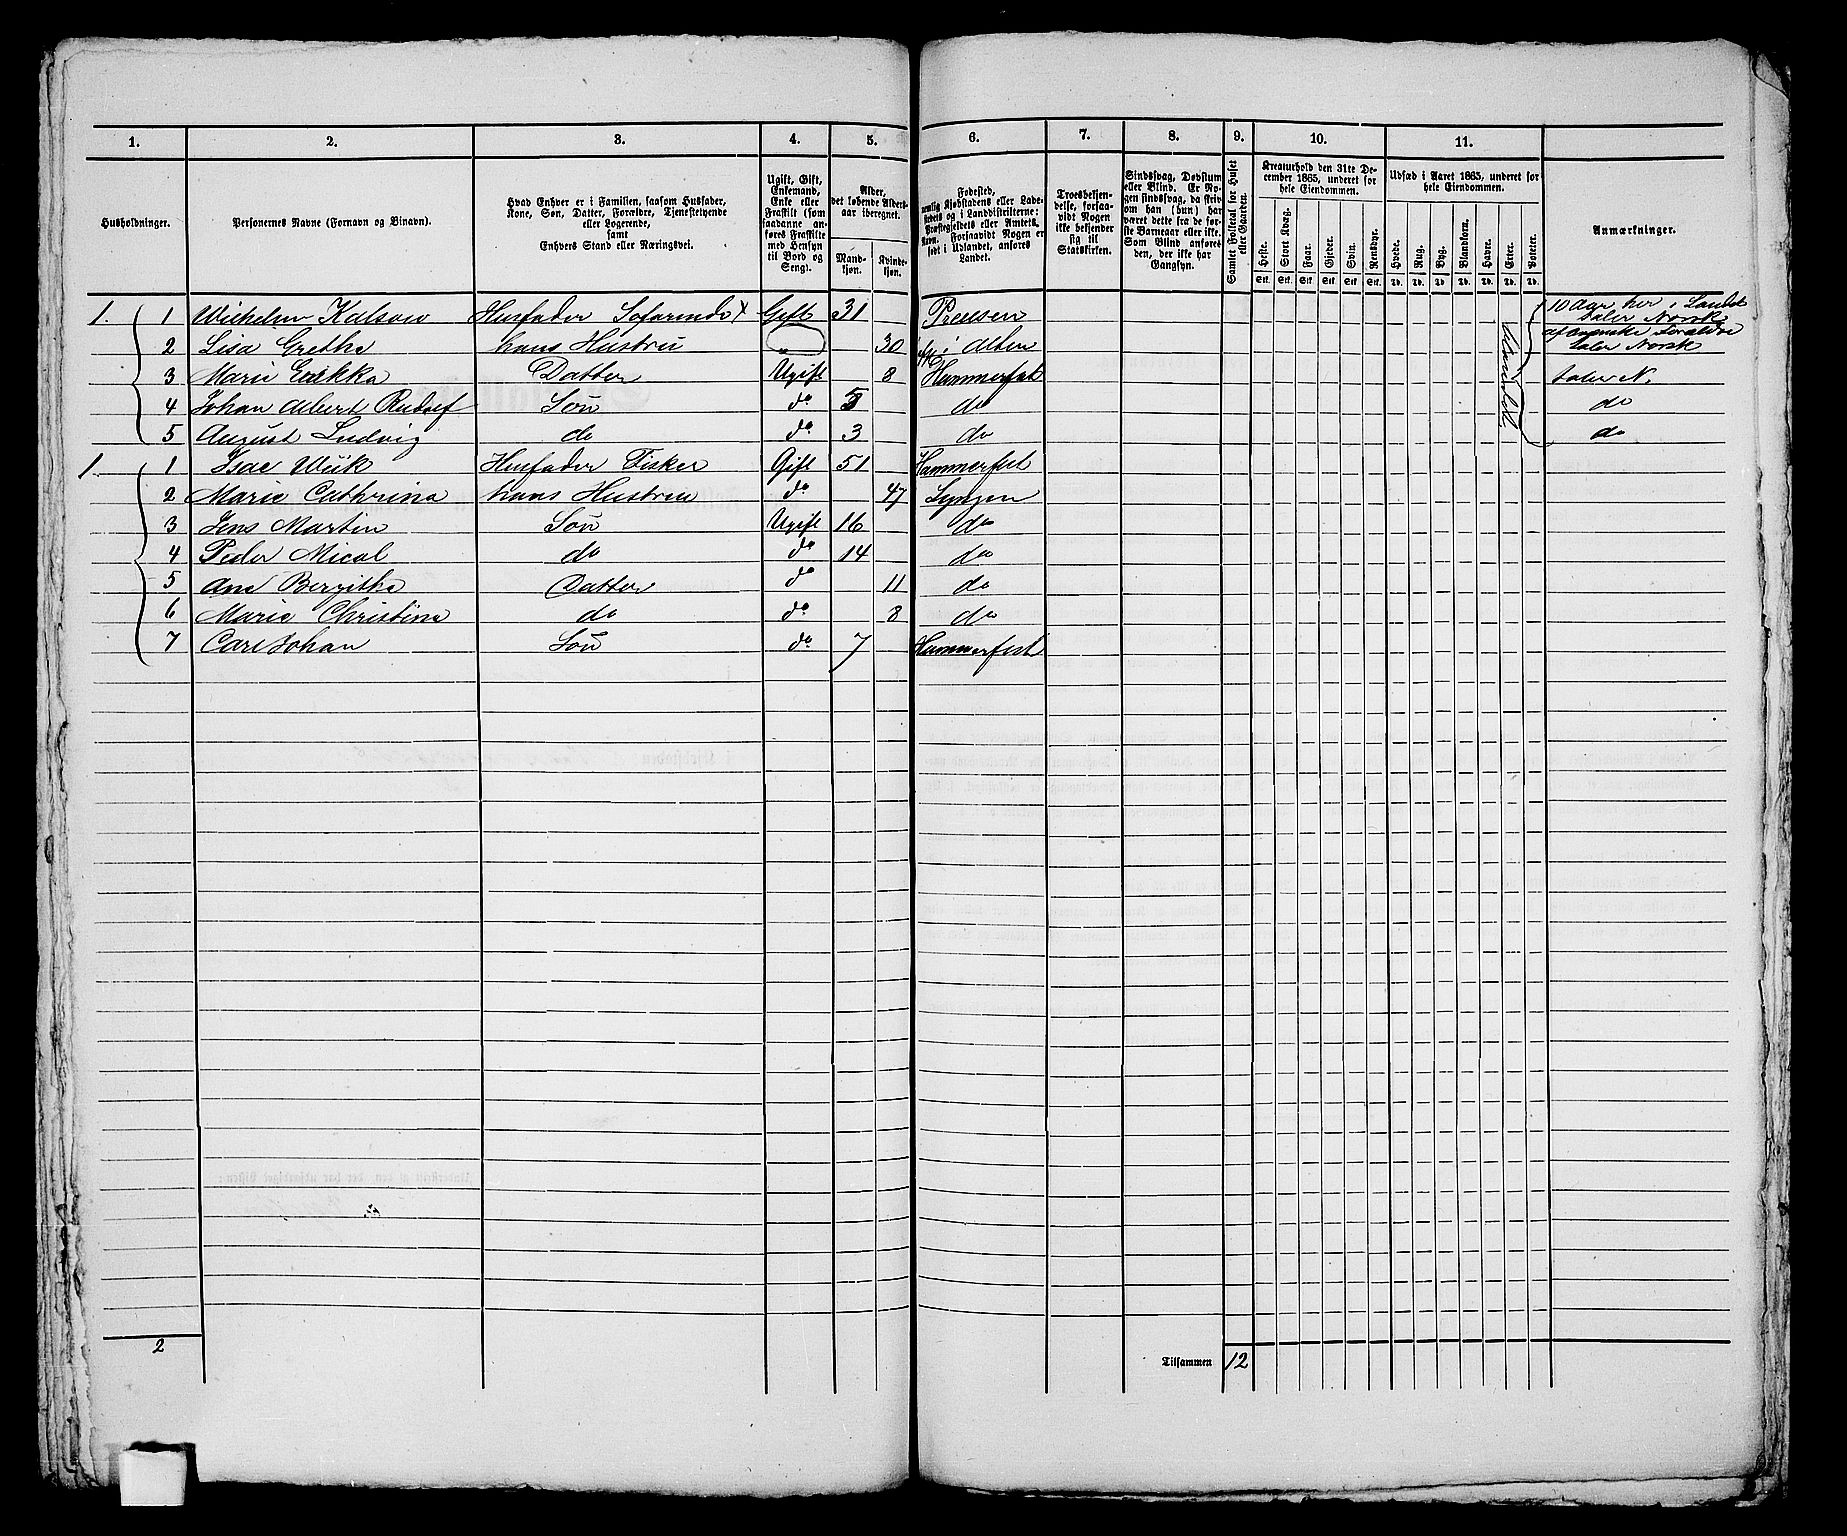 1. 2. 3. 4. 5. 6. 7. 8. 9. 10. 11.
Husholdninger.
Personernes Navne (Fornavn og Binavn).
Hvad Enhver er i Familien, saasom Husfader,
Kone, Søn, Datter, Forældre, Tjenestetyende
eller Logerende,
samt
Enhvers Stand eller Næringsvei.
Ugift, Gift,
Enkemand,
Enke eller
Fraskilt (som
saadanne an-
føres Fraskilte
med Hensyn
til Bord og
Seng).
Alder,
det løbende Alders-
aar iberegnet.
Mand-
kjøn.
Kvinde-
kjøn.
Fødested,
nemlig Kjøbstadens eller Lade-
stedets og i Landdistrikterne:
Præstegjeldets eller Amtets
Navn. Forsaavidt Nogen er
født i Udlandet, anføres
Landet.
Troesbekjen-
delse, forsaa-
vidt Nogen
ikke bekjender
sig til
Statskirken.
Sindssvag, Døvstum
eller Blind. Er No-
gen sindssvag, da skriv
om han (hun) har
været dette fra de før-
ste Barneaar eller ikke.
Som Blind anføres
den, der ikke har
Gangsyn.
Samlet Folketal for Huset
eller Gaarden.
Kreaturhold den 31te De-
cember 1865, underet for
hele Eiendommen.
Heste. Stort Kvæg. Faar. Gjeder. Svin. Rensdyr.
Stk. Stk. Stk. Stk. Stk. Stk.
Udsæd i Aaret 1865, underet for
hele Eiendommen.
Hvede. Rug. Byg. Blandkorn. Havre. Erter. Poteter.
Td. Td. Td. Td. Td. Td. Td.
Anmærkninger.
1. 1 Wilhelm Kalsow Husfader Gift 31 Preusen 10 Aar her i Landet
taler Norsk
2 Lisa Grethe hans Hustru 30 i Alten af Forældre
taler Norsk
3 Marie Datter Ugift 8 Hammerfest taler N.
4 Johan Albert Rudolf Søn do 5 do do
5 August Ludvig do do 3 do do
1. 1 Isac Wiik Husfader Fisker Gift 51 Hammerfest
2 Marie Cathrina hans Hustru do 47 Lyngen
3 Jens Martin Søn Ugift 16 do
4 Peder Mical do do 14 do
5 Ane Bergitha Datter do 11 do
6 Marie Christina do do 8 do
7 Carl Johan Søn do 7 Hammerfest
2
Tilsammen 12